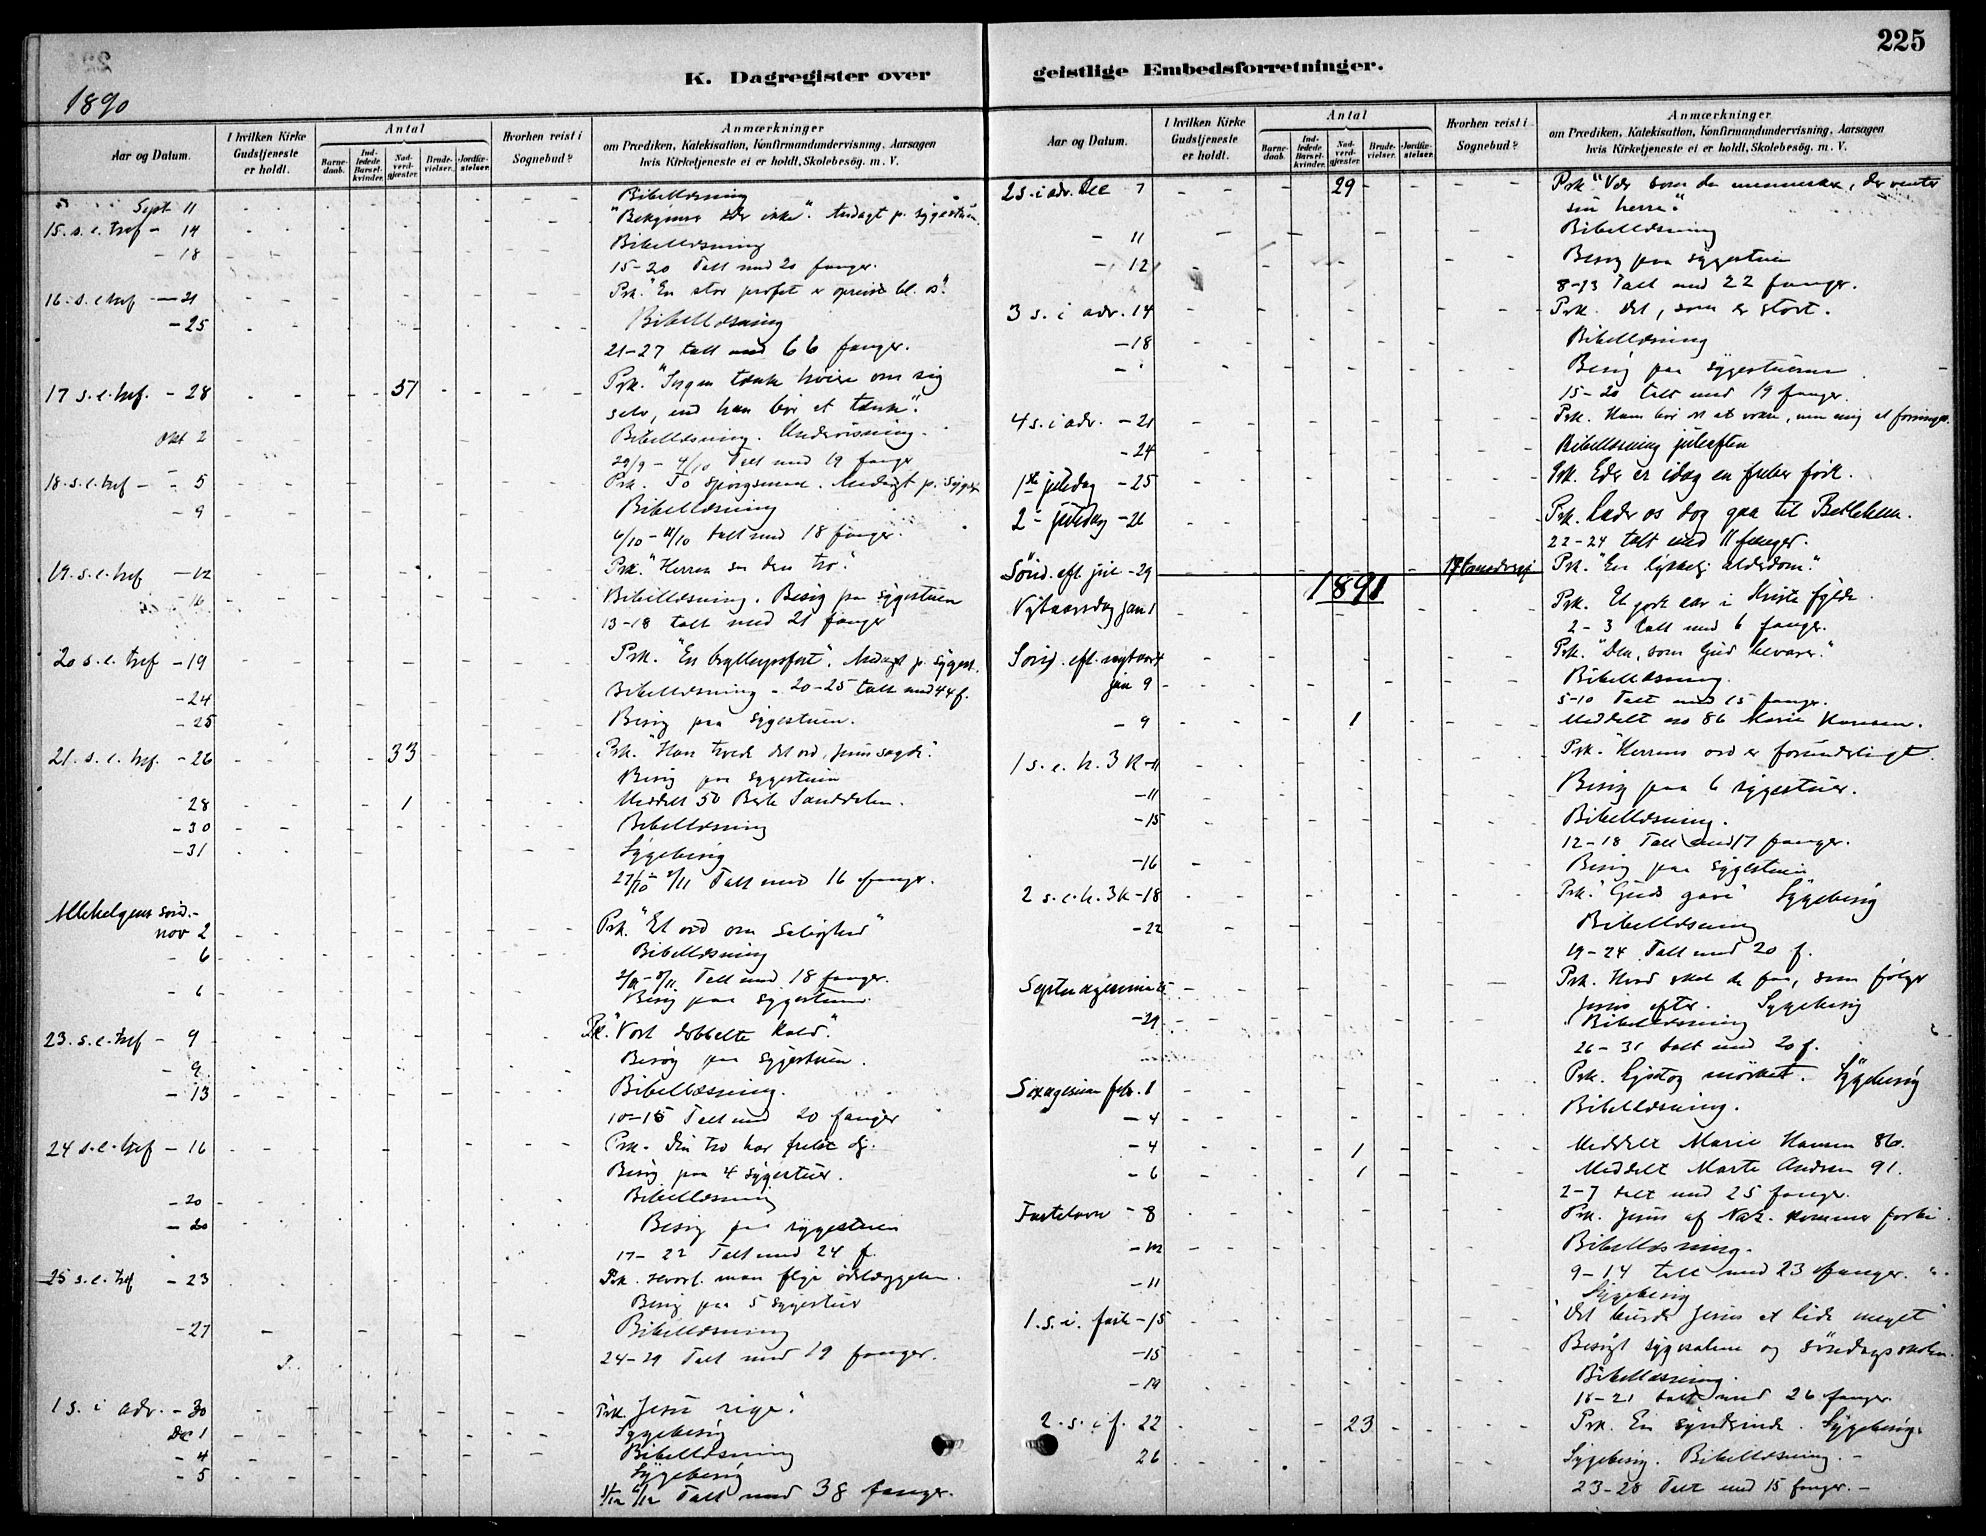 225
K. Dagregister over
1890
Aar og Datum.
I hvilken Kirke Gudstjeneste er holdt.
Antal
Barne-daab.
Ind-ledede Barsel-kvinder.
Nad-verd-gjæster.
Brude-vielser.
Jordfæ-stelser.
Hvorhen reist i Sognebud?
Anmærkninger
om Prædiken, Katekisation, Konfirmandundervisning, Aarsagen
hvis Kirketjeneste ei er holdt, Skolebesøg. m. V.
Sept 11 Bibellæsning
15. s. e. tref - 14 Andagt p. sygestuen
- 18 Bibellæsning
15-20 Talt med 20 fanger.
16. s. e tref - 21 Prk. "En stor profet er opreist bl. os".
- 25 Bibellæsning
21-27 talt med 66 fanger.
17 s. e. tref. - 28 51 Prk. "Ingen tænke høiere om sig
selv, end han bør at tænke".
Okt 2 Bibellæsning. Undervisning.
29/9 - 4/10 Talt med 19 fanger
18. s. e. tref - 5 Prk. To spørgsmaal. Andagt p. sygest
- 9 Bibellæsning
6/10 - 11/10 talt med 18 fanger.
19. s. e. tref - 12 Prk. "Herren se den tro".
- 16 Bibellæsning. Besøg paa sygestuen
13-18 talt med 21 fanger
20 s. e. tref - 19 Prk. "En bryllupsfest". Andagt p. sygest.
- 24 Bibellæsning - 20-25 talt med 44 f.
- 25 Besøg paa sygestuen.
21. s. e. tref. - 26 33 Prk. "Han troede det ord, Jesus sagde".
Besøg paa sygestuen
28 1 Meddelt 50 Berte Sanddalen.
- 30 Bibellæsning
- 31 Sygebesøg
27/10 - 1/11 Talt med 16 fanger.
Allehelgens sønd.-
nov 2 Prk. "Et ord om Salighed"
- 6 Bibellæsning
Talt med 18 fanger.
- 6 Besøg paa sygestuen.
23. s. e. tref - 9 Prk. "Vort dobbelte kald".
- 9 Besøg paa sygestuen.
- 13 Bibellæsning.
10-15 Talt med 20 fanger
24 s. e. tref - 16 Prk. Din tro har frelst dig.
Besøg paa 4 sygestuer.
- 20 Bibellæsning
- 20 Besøg paa sygestuen
17-22 Talt med 24 f.
25 s. e. tref - 23 Prk. Hvorl. man flyr ødelæggelsen.
Besøg paa 5 sygestuer
- 27 Bibellæsning
24-29 Talt med 19 fanger.
1 s. i adv. - 30 Prk. Jesu rige".
Dec 1 Sygebesøg
- 4 Bibellæsning
- 5 Sygebesøg
Talt med 38 fanger.
geistlige Embedsforretninger.
Aar og Datum.
I hvilken Kirke Gudstjeneste er holdt.
Antal
Barne-daab.
Ind-ledede Barsel-kvinder.
Nad-verd-gjæster.
Brude-vielser.
Jordfæ-stelser.
Hvorhen reist i Sognebud?
Anmærkninger
om Prædiken, Katekisation, Konfirmandundervisning, Aarsagen
hvis Kirketjeneste ei er holdt, Skolebesøg. m. V.
2 s. i adv. Dec 7 29 Prk. "Vær som de mennesker, der venter
sin herre."
- 11 Bibellæsning
- 12 Besøg paa sygestuen
8-13 Talt med 22 fanger.
3 s. i adv. 14 Prk. Det, som er stort.
- 18 Bibellæsning
Besøg paa sygestuerne
15-20 talt med 19 fanger.
4 s. i adv. - 21 Prk. Ham bør det at vokse, men mig at forringes.
- 24 Bibellæsning juleaften
1ste juledag - 25 Prk. Eder er idag en frelser født.
2- juledag - 26 Prk. Lader os dog gaa til Betlehem.
22-24 talt med 11 fanger.
Sønd. eft. jul - 29 Prk. "En lykkelig alderdom".
1891
Nytaarsdag jan 1 Prk. Et godt aar i Kristi fylde.
2-3 talt med 6 fanger.
Sønd. eft. nytaar 4 Prk. "Den, som Gud bevarer."
jan 9 Bibellæsning.
5-10 Talt med 15 fanger.
- 9 1 Meddelt no 86 Marie Hansen.
1 s. e. h. 3 K - 11 Prk. "Herrens ord er forunderligt.
- 11 Besøg paa 6 sygestuer.
- 15 Bibellæsning.
12-18 Talt med 17 fanger.
- 16 Besøg paa sygestuen
2 s. e. h. 3 K - 18 Prk. "Guds gave" Sygebesøg
- 22 Bibellæsning
19-24 Talt med 20 f.
Septuagesima 25 Prk. Hvad skal de faa, som følger
Jesus efter. Sygebesøg
- 29 Bibellæsning
26-31 talt med 20 f.
Sexagesima febr. 1 Prk. Lys og mørket. Sygebesøg
- 4 Bibellæsning.
- 4 1 Meddelt Marie Hansen 86.
- 6 1 Meddelt Marte Andsen 91.
2-7 talt med 25 fanger.
Fastelavn - 8 Prk. Jesus af Naz. kommer forbi.
- 12 Bibellæsning.
9-14 talt med 23 fanger.
- 11 Sygebesøg
1. s. i. faste - 15 "Det burde Jesus at lide meget"
- 15 Besøgt sygesalene og søndagsskolen.
- 19 Bibellæsning.
16-21 talt med 26 fanger.
2. s. i f. 22 23 Prk. En synderinde. Sygebesøg.
26 Sygebesøg. Bibellæsning. -
23-28 Talt med 15 fanger. -